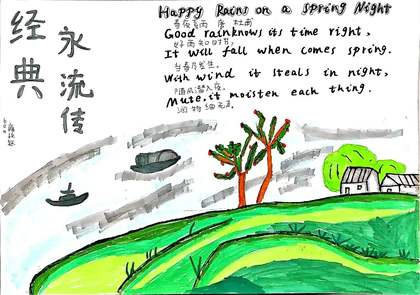 Happy Rains on a Spring Night
春夜喜雨 唐 杜甫
Good rain knows its time right,
好雨知时节,
It will fall when comes spring.
当春乃发生。
With wind it steals in night,
随风潜入夜,
Mute, it moisten each thing.
润物细无声
经典
永流传